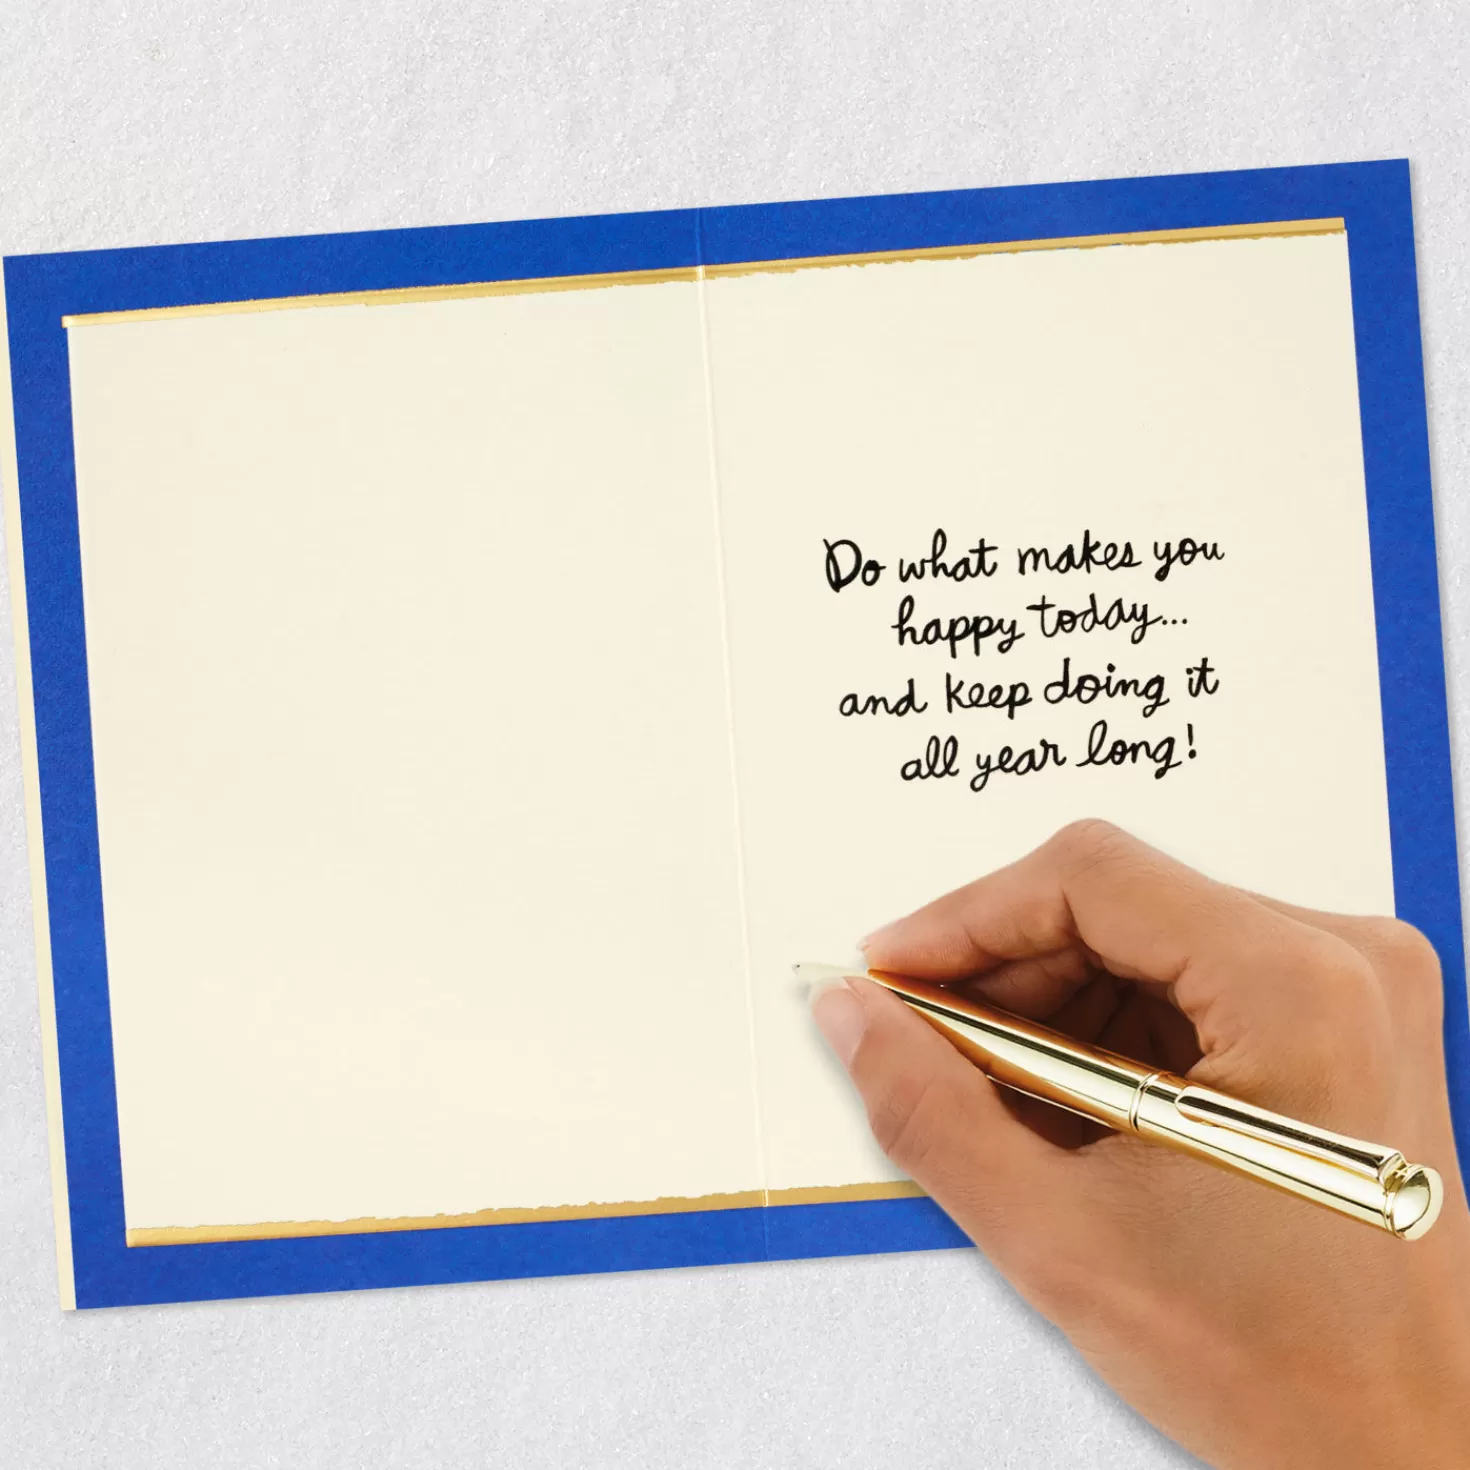 Do what makes you
happy today...
and keep doing it
all year long!